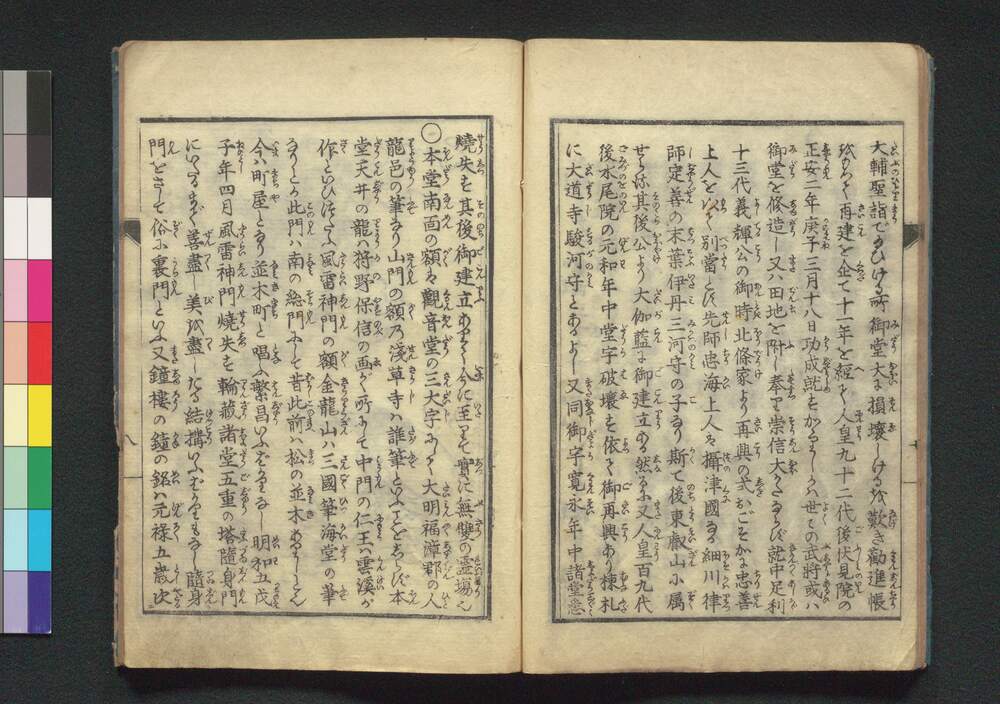 大輔聖詣でありける所御堂大に損壊しけるを歎き勧進帳
をかきて再建を企て十一年を経て人皇九十二代後伏見院の
正安二年庚子三月十八日功成就せりかゝりしかハ世々の武将或ハ
御堂を修造し又ハ田地を附し奉り崇信大かたならず就中足利
十三代義輝公の御時北條家より再興の式おごそかに忠善
上人を以て別當とし先師忠海上人ハ攝津國の細川律
師定善の末葉伊丹三河守の子なり斯て後東叡山に属
せられ其後公より大伽藍に御建立ある然るに又人皇百九代
後水尾院の元和年中堂宇破壊を依て御再興あり棟札
に大道寺駿河守とあるよし又同御宇寛永年中諸堂悉
焼失す其後御建立ありて今に至りて實に無雙の霊場也
〇本堂南面の額は觀音堂の三大字にして大明福漳郡の人
龍邑の筆なり山門の額乃淺草寺ハ誰筆といふことをしらず本
堂天井の龍ハ狩野保信の画く所にて中門の仁王ハ雲溪が
作といひつたふ風雷神門の額金龍山ハ三國筆海堂の筆
なりとか此門ハ南の総門にして昔此前ハ松の並木ありしとぞ
今ハ町屋となり並木町と唱ふ繁昌いふばかりなし明和五戊
子年四月風雷神門焼失す輪蔵諸堂五重の塔隨身門
にいたるまで善盡し美を盡したる結構いふばかりもなし隨身
門をさして俗に裏門といふ又鐘樓の鐘の銘ハ元禄五歳次
八